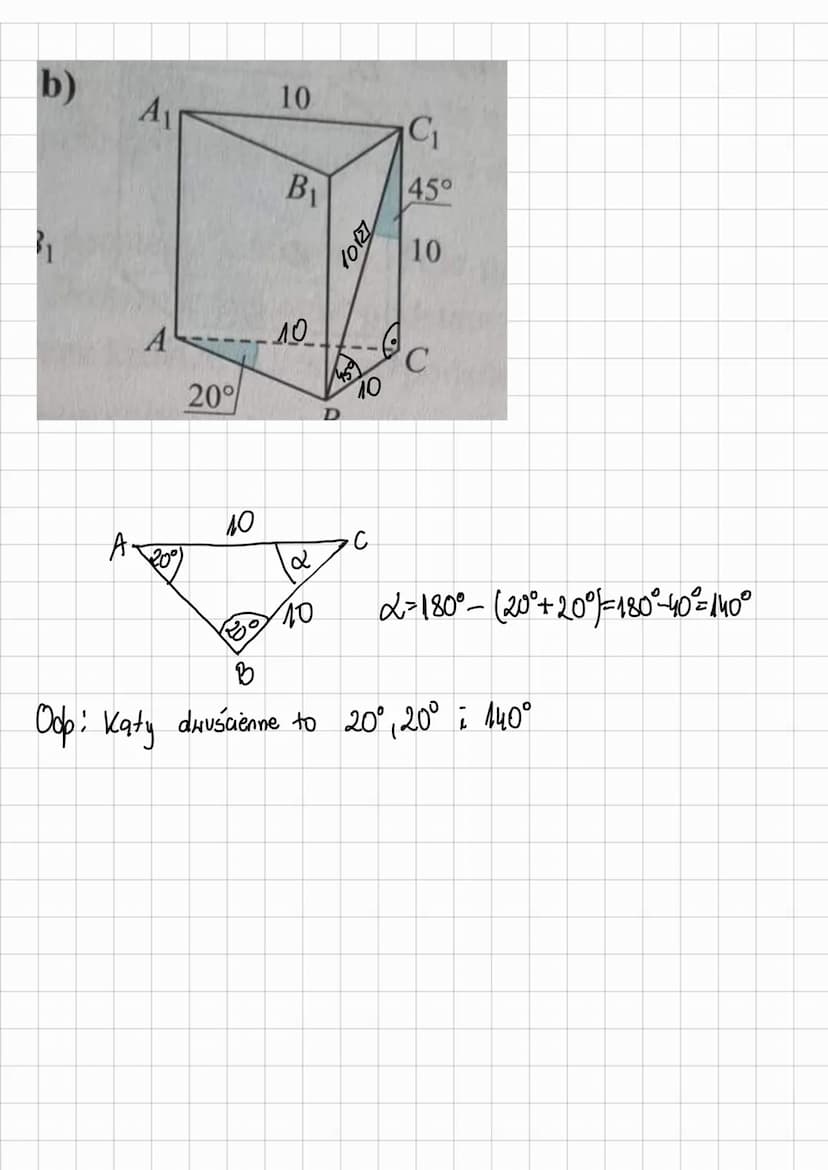 b)
A₁
10
C₁
B₁
45°
10√2
10
₁
A
10
C
45°
10
20°
A
10
C
20°
α
20°
10
α=180°-(20°+20°)=180°-40°=140°
B
Odp: Kąty dwuścienne to 20°, 20° i 140°